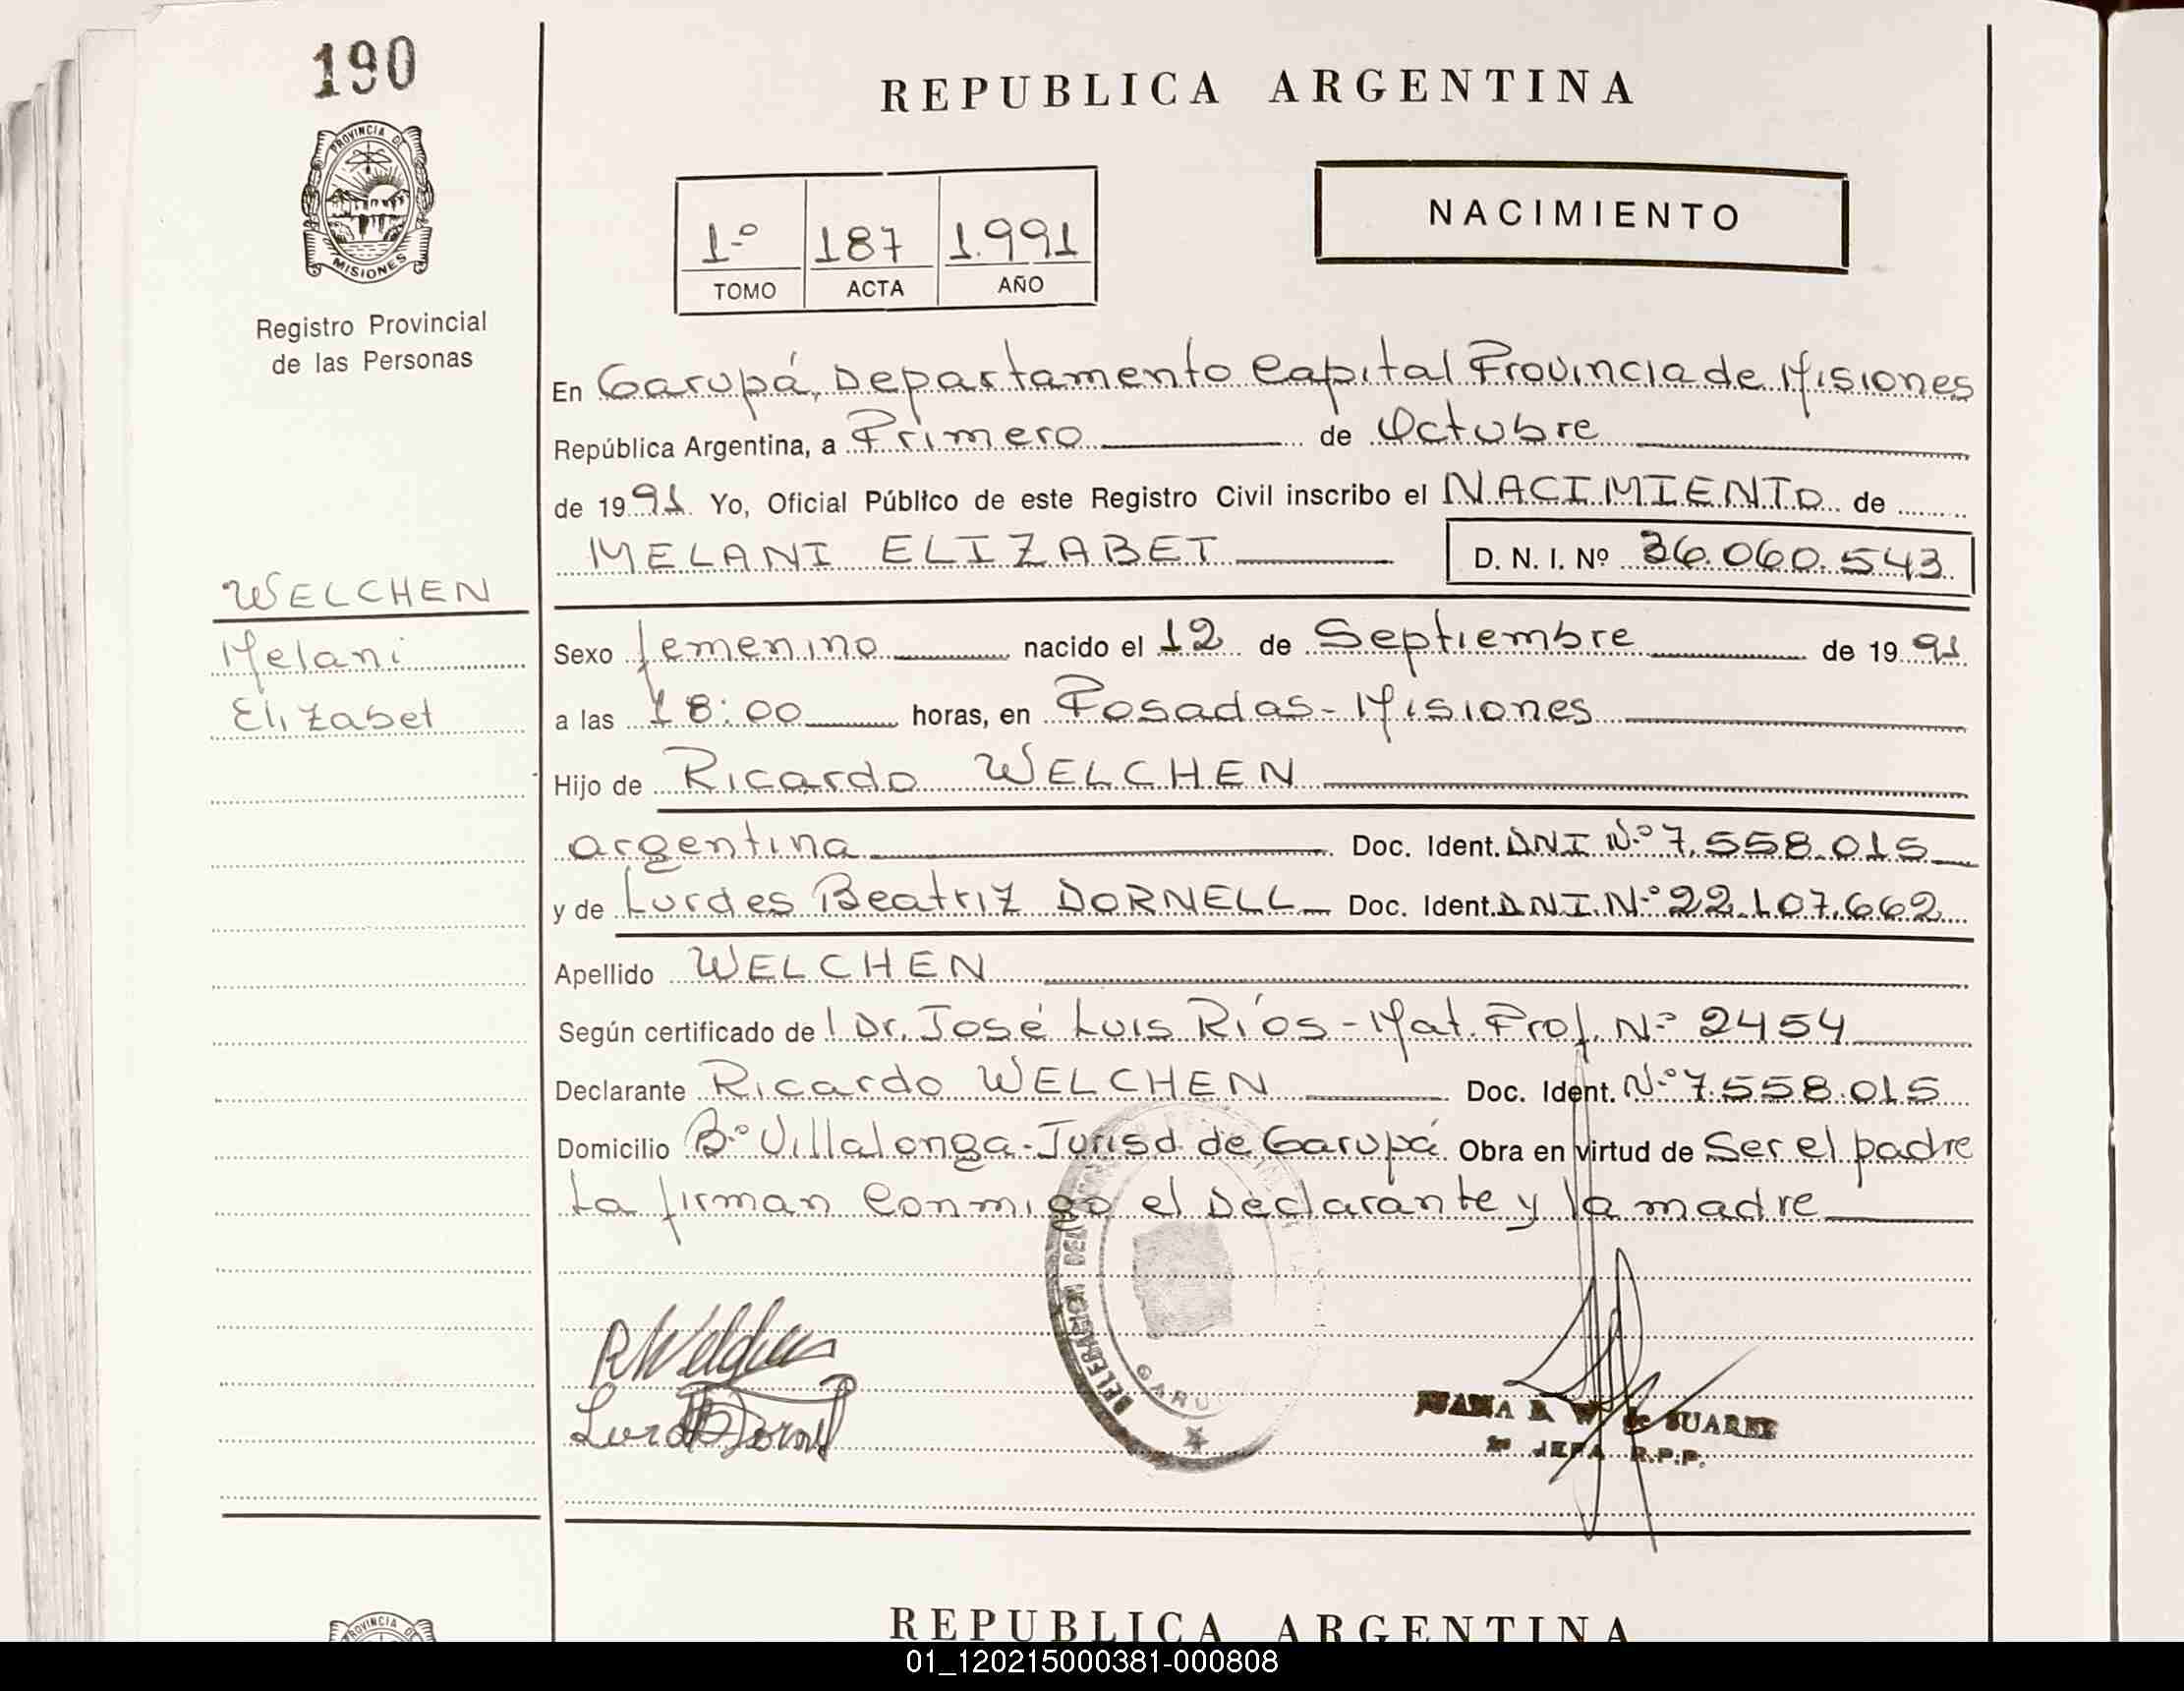 190
PROVINCIA DE
MISIONES
Registro Provincial
de las Personas
REPUBLICA ARGENTINA
1º 187 1.991
TOMO ACTA AÑO
NACIMIENTO
En Garupá, Departamento Capital Provincia de Misiones
República Argentina, a Primero de Octubre
de 1991 Yo, Oficial Público de este Registro Civil inscribo el NACIMIENTO de
MELANI ELIZABET D. N. I. Nº 36.060.543
WELCHEN
Melani
Elizabet
Sexo femenino nacido el 12 de Septiembre de 1991
a las 18:00 horas, en Posadas - Misiones
Hijo de Ricardo WELCHEN
argentina Doc. Ident. DNI Nº 7.558.015
y de Lurdes Beatriz DORNELL Doc. Ident. DNI.Nº 22.107.662
Apellido WELCHEN
Según certificado de l Dr. José Luis Ríos - Mat. Prof. Nº 2454
Declarante Ricardo WELCHEN Doc. Ident. Nº 7.558.015
Domicilio Bº Villalonga - Jurisd. de Garupá Obra en virtud de Ser el padre
La firman Conmigo el Declarante y la madre
GARU
R Welchen
JUANA B. W. de SUAREZ
JEFA R.P.P.
REPUBLICA ARGENTINA
PROVINCIA DE
01_120215000381-000808